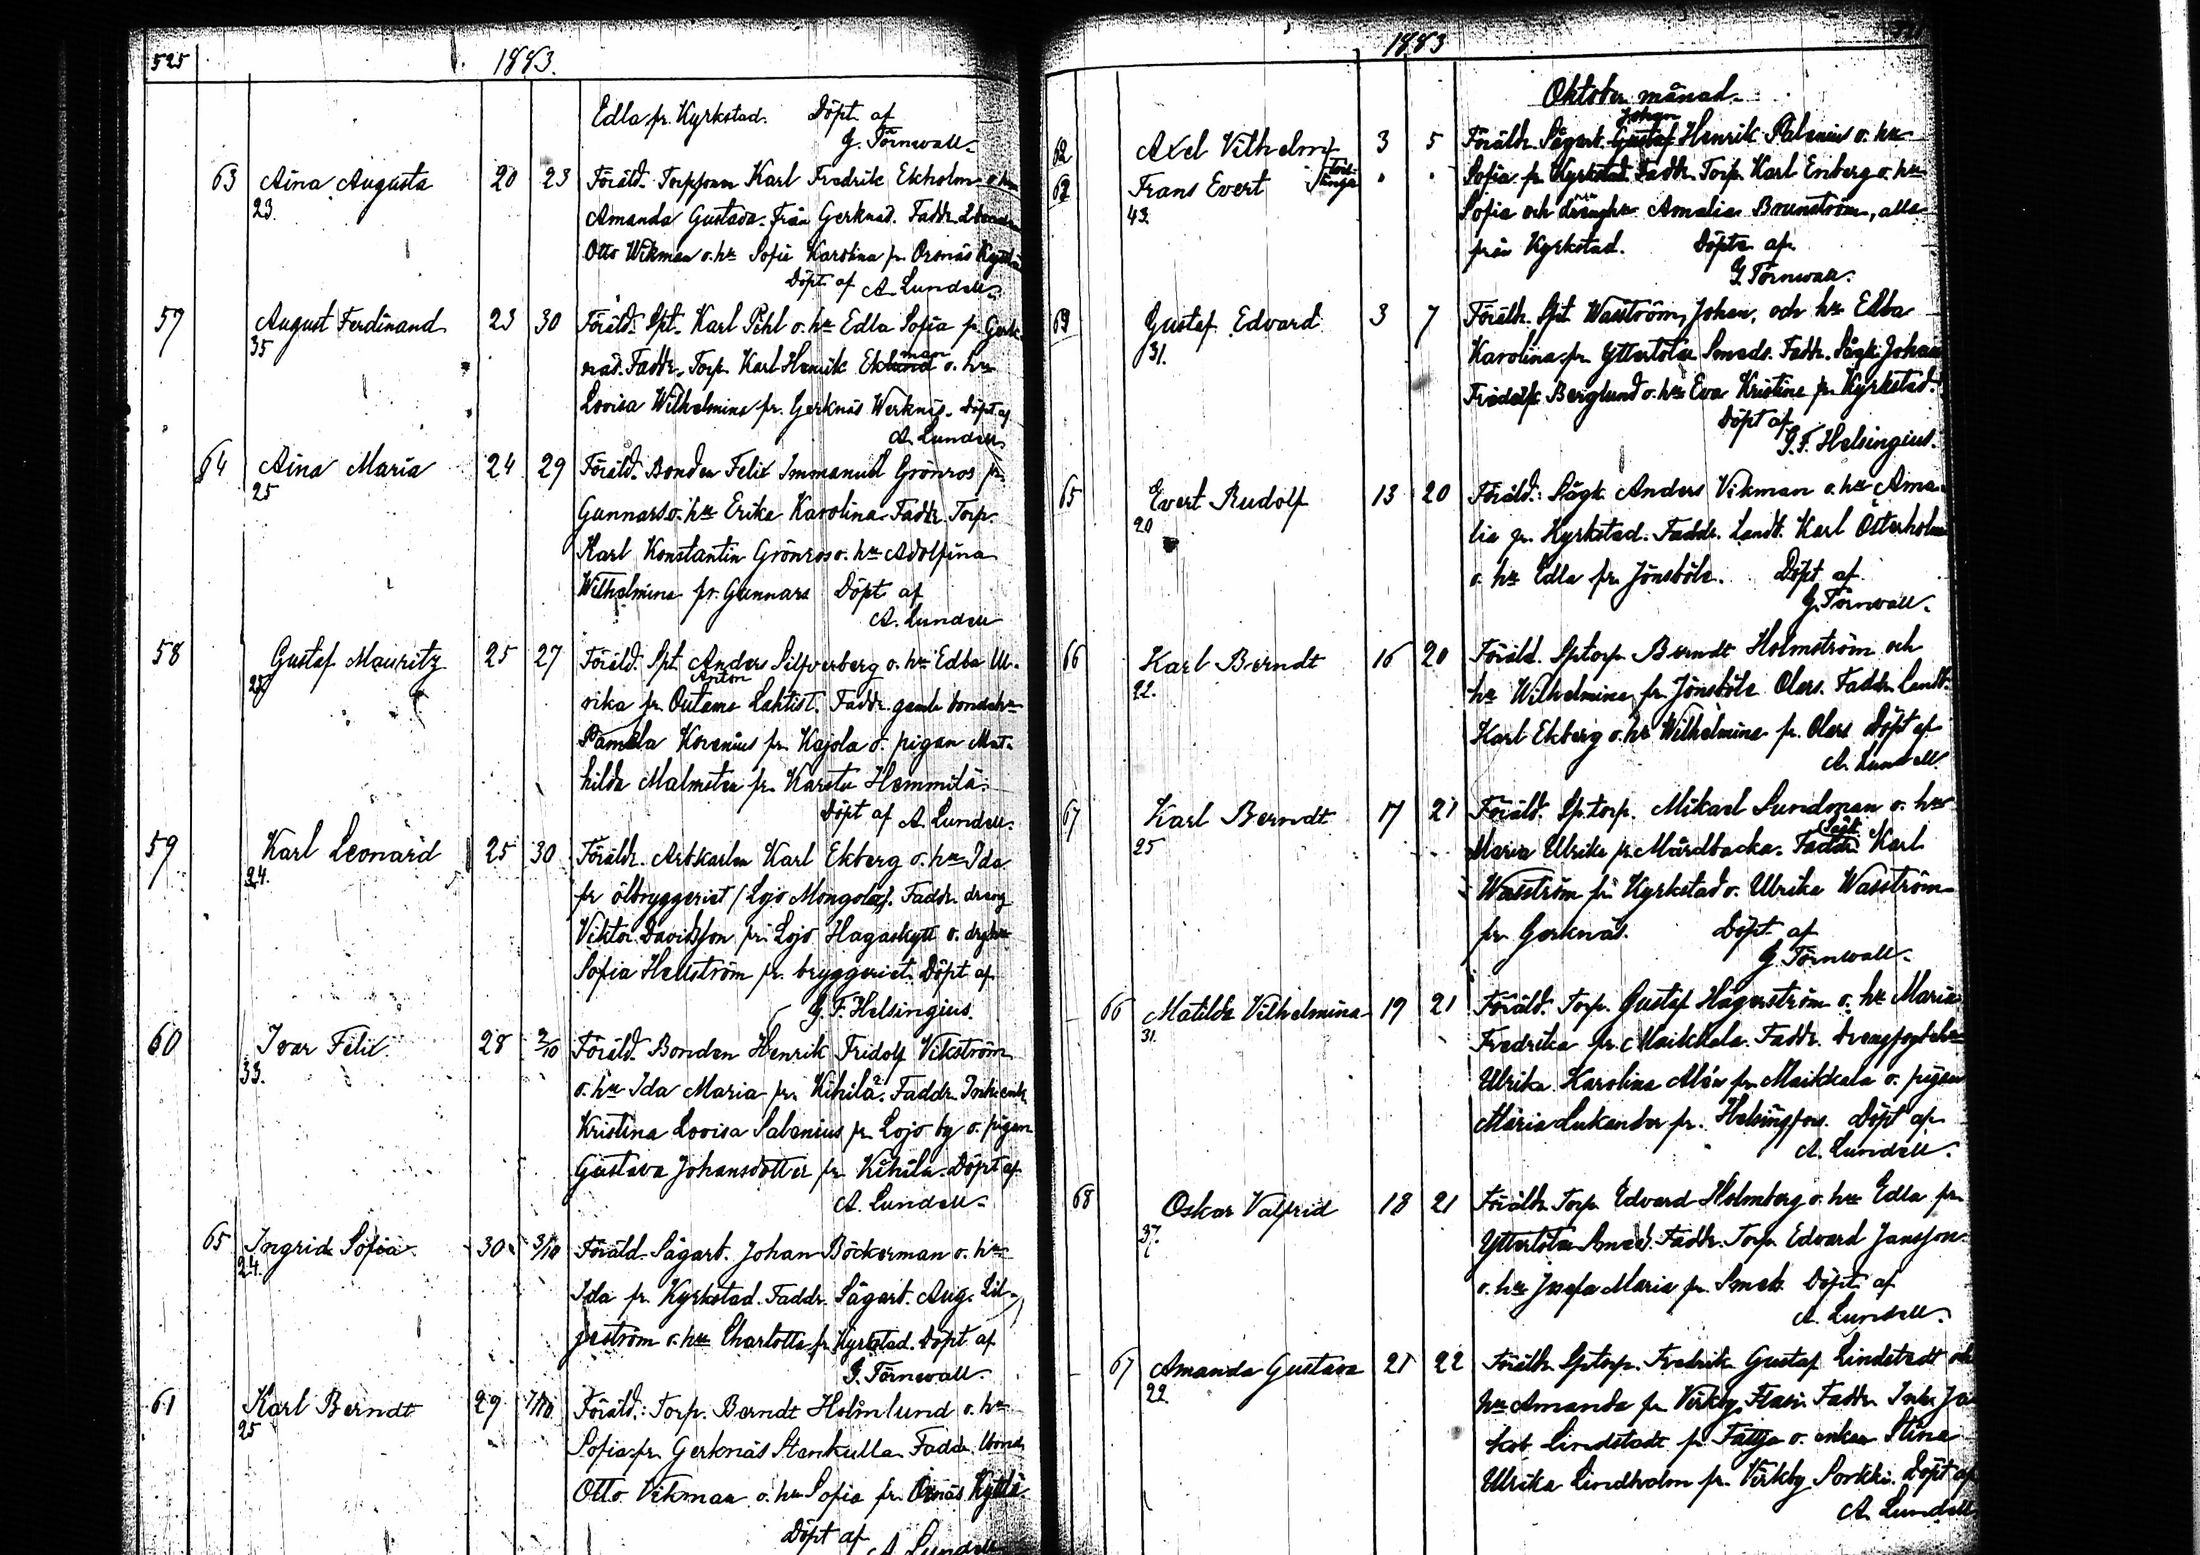 525
1883.
Edla fr. Kyrkstad. Döpt af
G. Törnwall.
63 Aina Augusta 20 23 Föräld. Torpson Karl Fredrik Ekholm o. hu
23. Amanda Gustava från Gerknäs. Faddr.
Otto Wikman o. hu Sofia Karolina fr. Ormnäs
Döpt af A. Lundell.
57 August Ferdinand 23 30 Föräld. Spt. Karl Pihl o. hu Edla Sofia fr. Gerk-
35 näs. Faddr. Torp. Karl Henrik Eklund man o. hu
Lovisa Wilhelmina fr. Gerknäs Werknäs. Döpt af
A. Lundell.
64 Aina Maria 24 29 Föräld. Bonden Felix Immanuel Grönros fr.
25 Gunnars o. hu Erika Karolina. Faddr. Torp.
Karl Konstantin Grönros o. hu Adolfina
Wilhelmina fr. Gunnars Döpt af
A. Lundell
58 Gustaf Mauritz 25 27 Föräld. Spt. Anders Silfverberg o. hu Edba Ul-
Anton
25 rika fr. Outamo Lahtist. Faddr. gamle bondehu
Pamela Korenius fr. Kajola o. pigan Mat-
hilda Malmsten fr. Karstu Hemmilä.
Döpt af A. Lundell.
59 Karl Leonard 25 30 Föräldr. Arbkarlen Karl Ekberg o. hu Ida
24. fr ölbryggeriet / Lojo Mongola/. Faddr. dreng
Viktor Davidsson fr. Lojo Hagaskytt o. drghu
Sofia Hellström fr. bryggeriet. Döpt af
G. F. Helsingius.
60 Ivar Felix 28 2/10 Föräld. Bonden Henrik Fridolf Vikström
33. o. hu Ida Maria fr. Kihilä. Faddr. Inh. enk.
Kristina Lovisa Salenius fr. Lojo by o. pigan
Gustava Johansdotter fr. Kihila. Döpt af
A. Lundell.
65 Ingrid Sofia 30 3/10 Föräld. Sågarb. Johan Böckerman o. hu
24. Ida fr. Kyrkstad. Faddr. Sågarb. Aug. Lil-
jeström o. hu Charlotta fr. Kyrkstad. Döpt af
G. Törnwall.
61 Karl Berndt 29 7/10 Föräld.: Torp. Berndt Holmlund o. hu
25 Sofia fr. Gerknäs Stenkulla. Faddr. bond.
Otto Vikman o. hu Sofia fr. Ormnäs
Döpt af A. Lundell
1883
Oktober månad.
Johan
62 Axel Vilhelm 3 5 Föräldr. Sågarb. Gustaf Henrik Palenius o. hu
62 Frans Evert Tvillingar " " Sofia fr. Kyrkstad. Faddr. Torp. Karl Enberg o. hu
43. Sofia och dränghu Amalia Brunström, alla
från Kyrkstad. Döpte af
G. Törnwall.
63 Gustaf Edvard 3 7 Föräldr. Spt. Wasström, Johan, och hu Edba
31. Karolina fr. Yttertölar Smeds. Faddr. Sågk. Johan
Fredrik Berglund o. hu Eva Kristina fr. Kyrkstad.
Döpt af
G. F. Helsingius.
65 Evert Rudolf 13 20 Föräld.: Sågk. Anders Vikman o. hu Ama-
20 lia fr. Kyrkstad. Faddr. Landt. Karl Österholm
o. hu Edla fr. Jönsböle. Döpt af
G. Törnwall.
66 Karl Berndt 16 20 Föräld. Sptorp. Berndt Holmström och
22. hu Wilhelmina fr. Jönsböle Olars. Faddr. Landt.
Karl Ekberg o. hu Wilhelmina fr. Olars Döpt af
A. Lundell.
67 Karl Berndt 17 21 Föräld. Sptorp. Mikael Sundman o. hu
25 Maria Ulrika fr. Mårdbacka. Faddr. Karl
Wasström fr. Kyrkstad o. Ulrika Wasström
fr. Gerknäs. Döpt af
G. Törnwall.
66 Matilda Vilhelmina 19 21 Föräld. Torp. Gustaf Hägerström o. hu Maria
31. Fredrika fr. Maikkala. Faddr. drengfogdehu
Ulrika Karolina Alén fr. Maikkala o. pigan
Maria Lukander fr. Helsingfors. Döpt af
A. Lundell.
68 Oskar Valfrid 18 21 Föräldr. Torp. Edvard Holmberg o. hu Edla fr.
37. Yttertölar Smed. Faddr. Torp. Edvard Jansson
o. hu Josefa Maria fr. Smeds Döpt af
A. Lundell.
67 Amanda Gustava 21 22 Föräldr. Sptorp. Fredrik Gustaf Lindstedt och
22. hu Amanda fr. Virkby Flasi. Faddr. Inh. Ja-
kob Lindstedt fr. Fattja o. enkan Stina
Ulrika Lindholm fr. Virkby Sorkki. Döpt af
A. Lundell